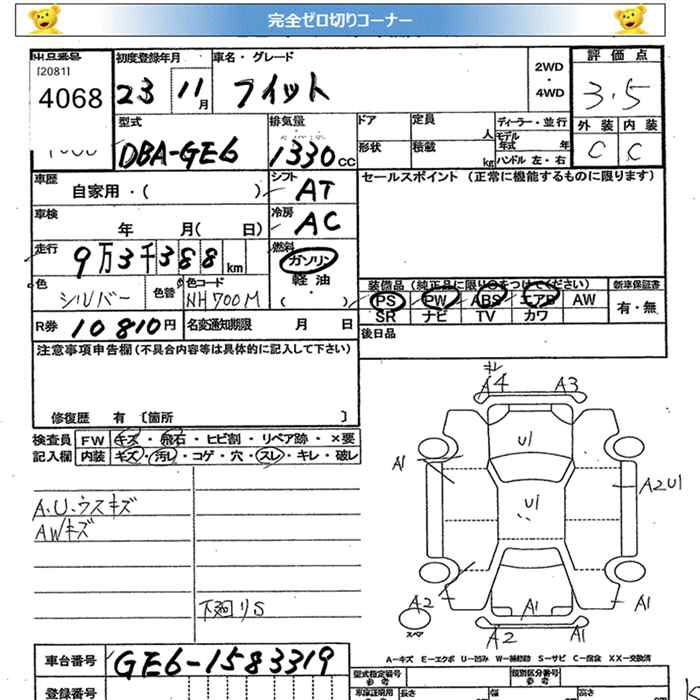 完全ゼロ切りコーナー
出品番号
[2081]
4068
初度登録年月
23 11月
車名・グレード
フィット
2WD
・
4WD
評価点
3.5
型式
DBA-GE6
排気量
1330cc
ドア
定員
人
形状
積載
kg
ディーラー・並行
モデル
年式 年
ハンドル 左・右
外装 内装
C C
車歴
自家用・( )
シフト
AT
セールスポイント (正常に機能するものに限ります)
車検
年 月( 日)
冷房
AC
走行
9万3千388km
燃料
ガソリン
・
軽油
・
( )
色
シルバー
色替
色コード
NH700M
装備品(純正品に限り○をつけてください)
新車保証書
PS PW ABS エアB AW
有・無
SR ナビ TV カワ
R券 10810円
名変通知期限 月 日
後日品
注意事項申告欄(不具合内容等は具体的に記入して下さい)
修復歴 有 〔箇所 〕
検査員
記入欄
FW キズ・飛石・ヒビ割・リペア跡・×要
内装 キズ・汚レ・コゲ・穴・スレ・キレ・破レ
A.U.ウスキズ
AWキズ
下廻りS
キレ
A4 A3
U1
A1
U1
A2U1
A2
A1
A1
A2 A1
スペア
A-キズ E-エクボ U-凹み W-補修跡 S-サビ C-腐食 XX-交換済
車台番号
GE6-1583319
登録番号
型式指定番号
参考
類別区分番号
参考
車検証明用
参考
長さ
幅
高さ